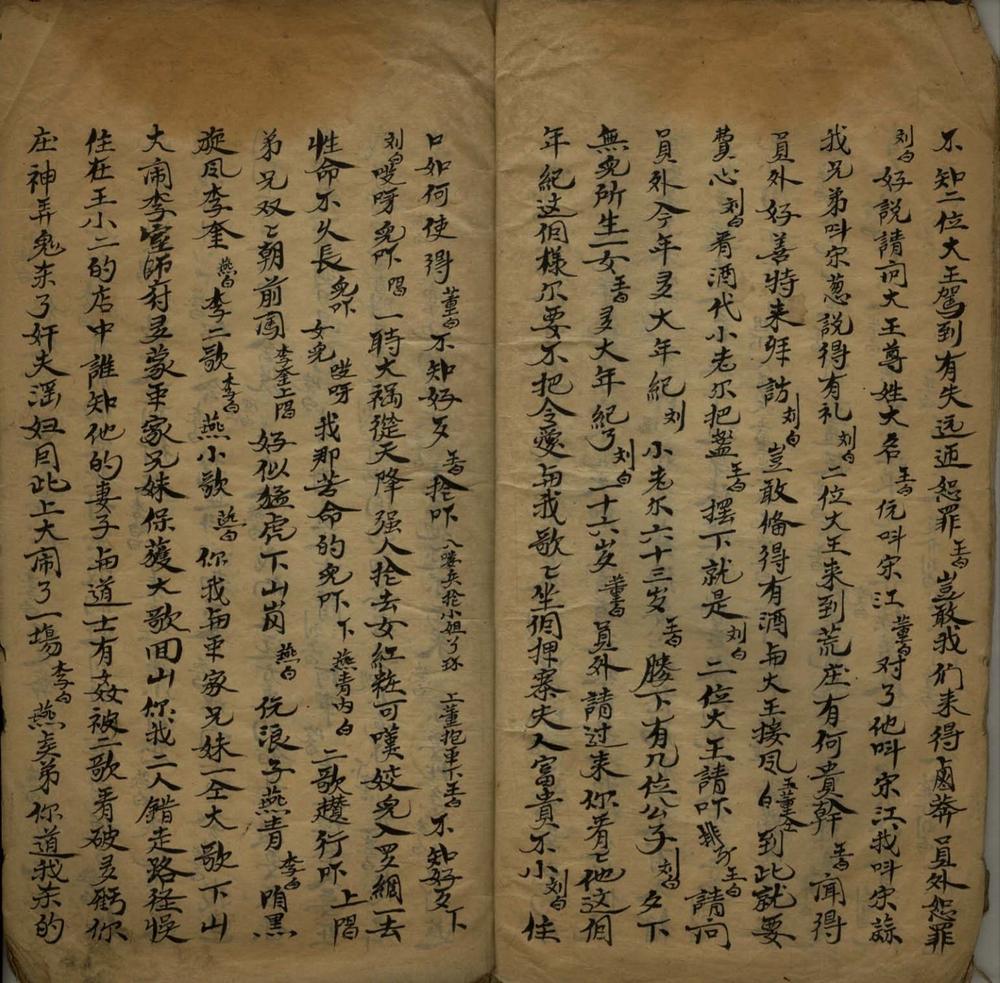 不知二位大王駕到有失远迊恕罪 王白 豈敢我们来得鹵莽員外恕罪
刘白 好説請问大王尊姓大名 王白 俺叫宋江 董白 对了他叫宋江我叫宋蒜
我兄弟叫宋葱説得有礼 刘白 二位大王来到荒庄有何貴幹 王白 闻得
員外好善特来拜訪 刘白 豈敢俻得有酒与大王接风 王董仝白 到此就要
費心 刘白 看酒代小老尔把盏 王白 摆下就是 刘白 二位大王請吓 王白 請问
員外今年多大年紀 刘 小老尔六十三岁 王白 膝下有几位公子 刘白 夕下
無児所生一女 王白 多大年紀了 刘白 一十六岁 董白 員外請过来你看〻他这個
年紀这個樣尔要不把令愛与我歌〻坐個押寨夫人富貴不小 刘白 住
口如何使得 董白 不知好歹 王白 抢吓 八喽兵抢小姐了环 上董抱車下王白 不知好歹 下
刘白 嗳呀児吓 唱 一時大禍從天降强人抢去女紅粧可嘆姣児入罗綱一去
性命不久長 児吓 女児 哎呀 我那苦命的児吓 下 燕青内白 二歌趱行吓 上唱
弟兄双〻朝前闯 李奎上唱 好似猛虎下山岗 燕白 俺浪子燕青 李白 咱黑
旋风李奎 燕白 李二歌 李白 燕小歌 燕白 你我与車家兄妹一仝大歌下山
大闹李室師府多蒙車家兄妹保獲大歌回山你我二人錯走路径悞
住在王小二的店中誰知他的妻子与道士有姦被二歌看破多虧你
庄神弄鬼杀了奸夫滛妇因此上大闹了一塲 李白 燕矣弟你道我杀的